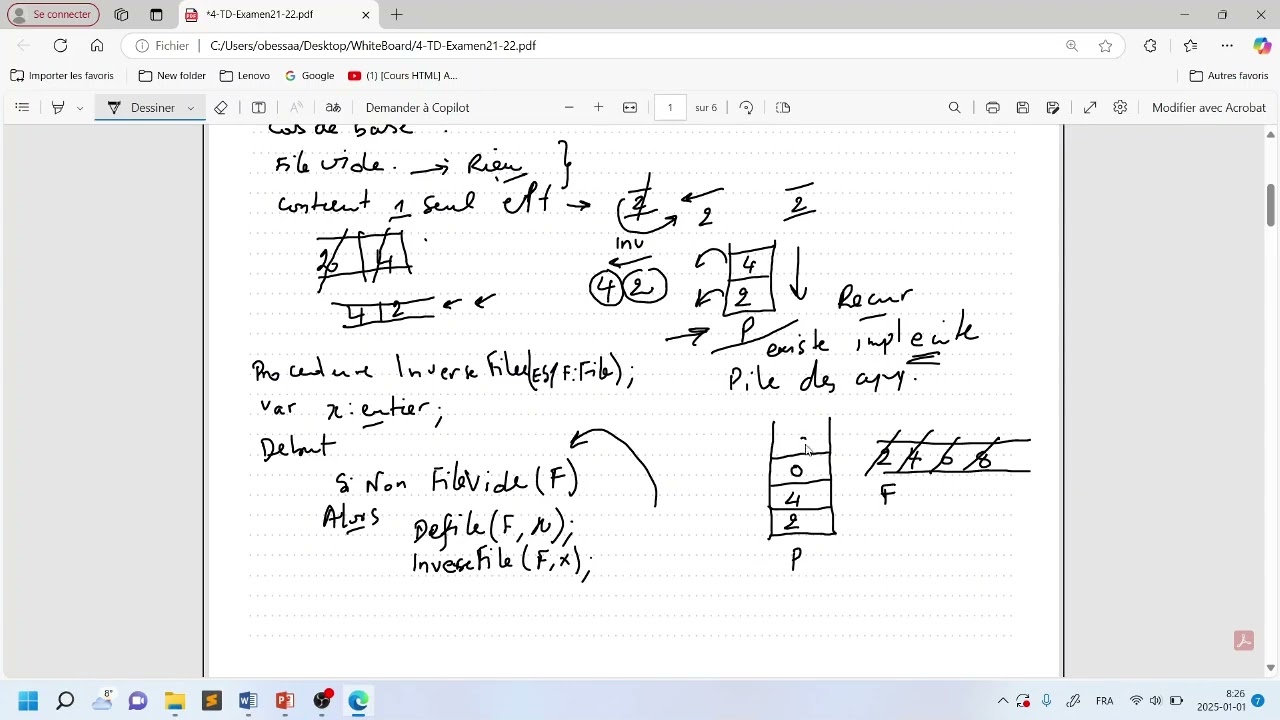 Se connecter
*4-TD-Examen21-22.pdf
Fichier C:/Users/obessaa/Desktop/WhiteBoard/4-TD-Examen21-22.pdf
Importer les favoris New folder Lenovo Google (1) [Cours HTML] A... Autres favoris
Dessiner Demander à Copilot 1 sur 6 Modifier avec Acrobat
Cas de base :
File vide. → Rien
Contient 1 seul elt → 2 2 2
Inv
2 4
4 2
4 2
4
2
P
Recur
existe implecite
Pile des app.
Procedure InverseFile(ES/ F:File);
Var x: entier;
Debut
Si Non FileVide(F)
Alors Defile(F, x);
InverseFile(F,x);
0
4
2
P
2 4 6 8
F
8°
FRA
8:26
2025-01-01